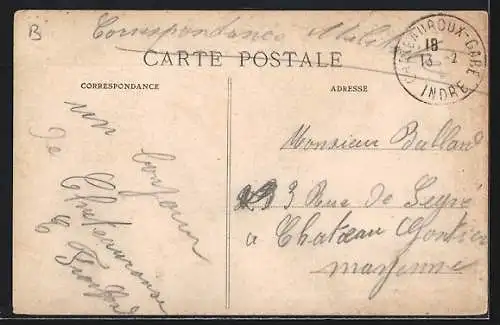 B
Correspondance Militaire
CARTE POSTALE
CHATEAUROUX-GARE
18
13 -2
INDRE
CORRESPONDANCE
ADRESSE
un bonjour
de Chateauroux
E
Monsieur Balland
3 Rue de
a Chateau Gontier
mayenne